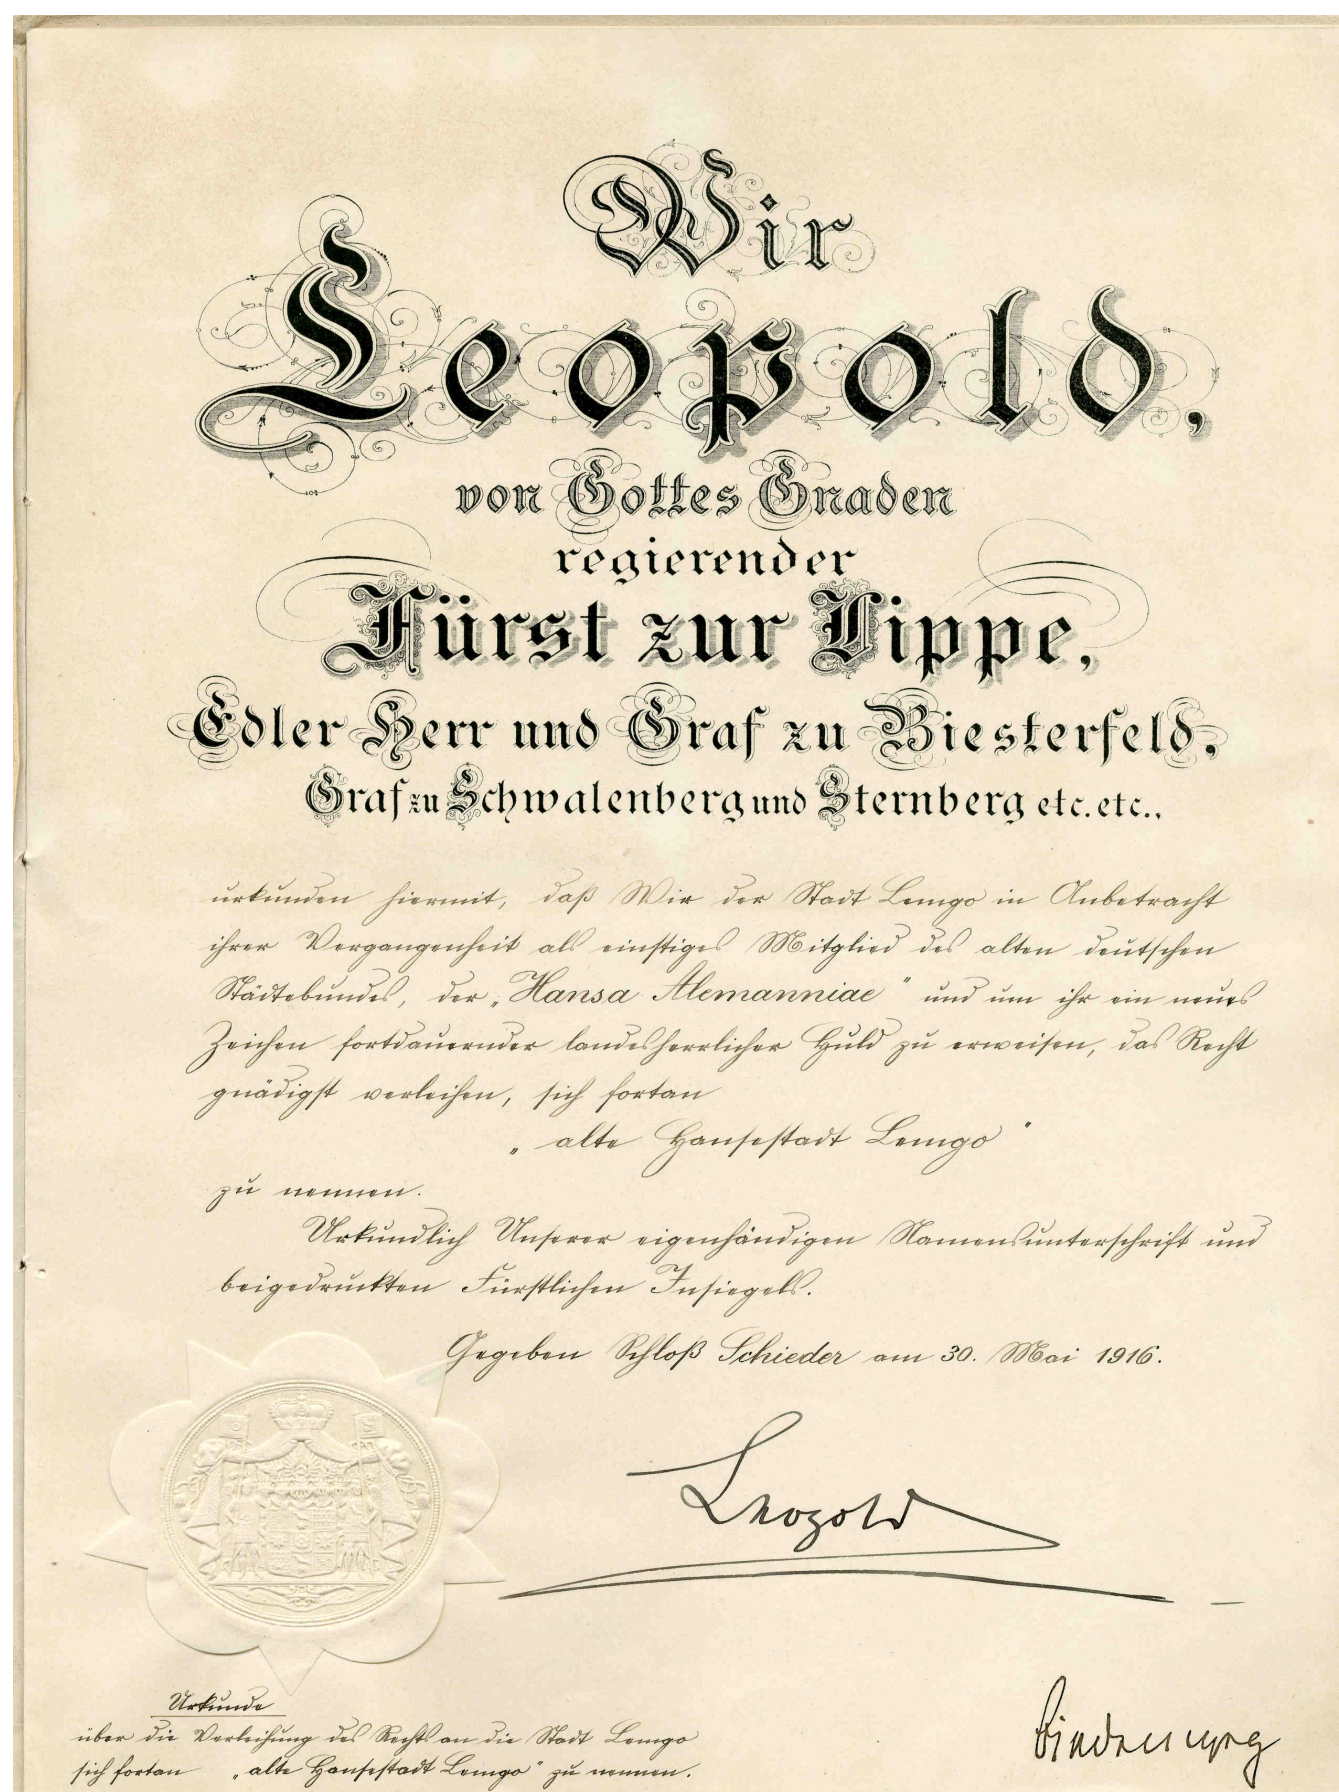 Wir
Leopold,
von Gottes Gnaden
regierender
Fürst zur Lippe,
Edler Herr und Graf zu Biesterfeld,
Graf zu Schwalenberg und Sternberg etc. etc.,
urkunden hiermit, daß Wir der Stadt Lemgo in Anbetracht
ihrer Vergangenheit als einstiges Mitglied des alten deutschen
Städtebundes, der „Hansa Alemanniae" und um ihr ein neues
Zeichen fortdauernder landesherrlicher Huld zu erweisen, das Recht
gnädigst verleihen, sich fortan
„alte Hansestadt Lemgo"
zu nennen.
Urkundlich Unserer eigenhändigen Namensunterschrift und
beigedruckten Fürstlichen Insiegels.
Gegeben Schloß Schieder am 30. Mai 1916.
Leopold
Urkunde
über die Verleihung des Rechts an die Stadt Lemgo
sich fortan „alte Hansestadt Lemgo" zu nennen.